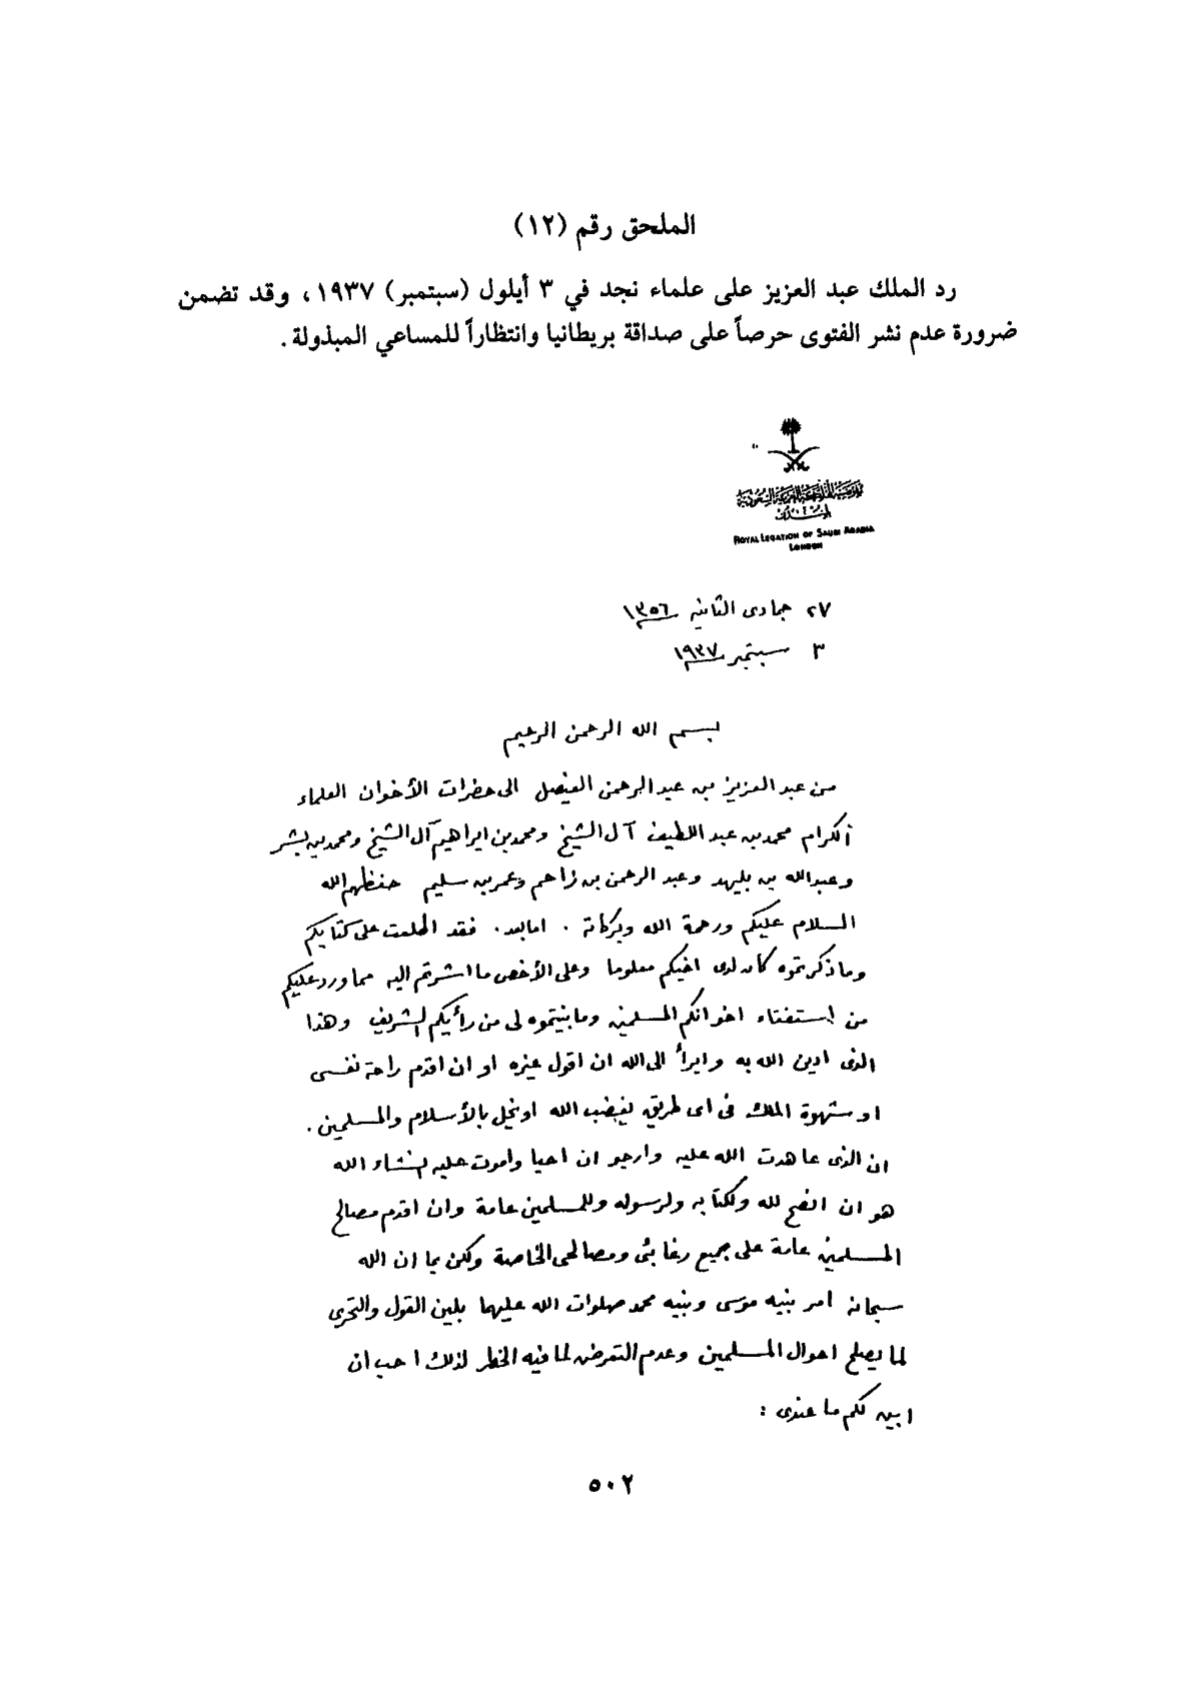 الملحق رقم (١٢)
رد الملك عبد العزيز على علماء نجد في ٣ أيلول (سبتمبر) ١٩٣٧، وقد تضمن
ضرورة عدم نشر الفتوى حرصاً على صداقة بريطانيا وانتظاراً للمساعي المبذولة.
ROYAL LEGATION OF SAUDI ARABIA
LONDON
٢٧ جمادى الثانيه ١٣٥٦
٣ سبتمبر ١٩٣٧
بسم الله الرحمن الرحيم
من عبد العزيز بن عبد الرحمن الفيصل الى حضرات الأخوان العلماء
الكرام محمد بن عبد اللطيف آل الشيخ ومحمد بن ابراهيم آل الشيخ ومحمد بن بشر
وعبدالله بن بليهد وعبد الرحمن بن زاحم وعمر بن سليم حفظهم الله
السلام عليكم ورحمة الله وبركاته . اما بعد . فقد اطلعت على كتابكم
وما ذكرتموه كان لدى اخيكم معلوما وعلى الأخص ما اشرتم اليه مما ورد عليكم
من استفتاء اخوانكم المسلمين وما بينتموه لى من رأيكم الشريف وهذا
الذى ادين الله به وابرأ الى الله ان اقول غيره او ان اقدم راحة نفسى
او شهوة الملك فى اى طريق يغضب الله او يخل بالأسلام والمسلمين .
ان الذى عاهدت الله عليه وارجو ان احيا واموت عليه انشاء الله
هو ان انصح لله ولكتابه ولرسوله وللمسلمين عامة وان اقدم مصالح
المسلمين عامة على جميع رغائبى ومصالحى الخاصة ولكن بما ان الله
سبحانه امر نبيه موسى ونبيه محمد صلوات الله عليهما بلين القول والتحرى
لما يصلح احوال المسلمين وعدم التعرض لما فيه الخطر لذلك احب ان
ابين لكم ما عندى :
٥٠٢